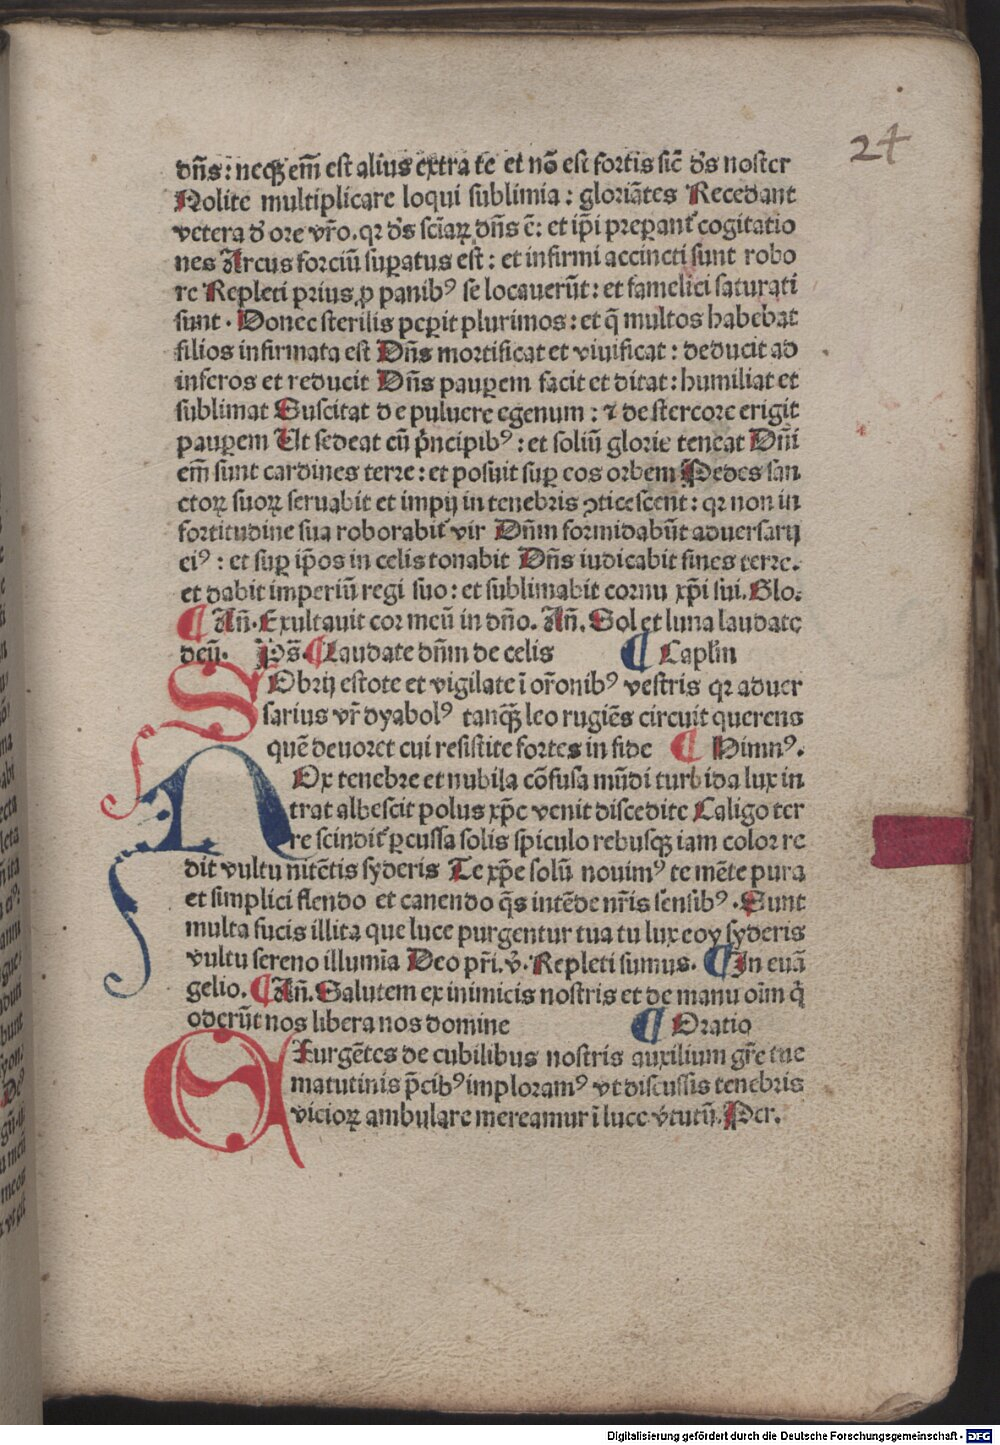 24
dn̄s: neqꝫ em̄ est alius extra te et nō est fortis sic̄ d's noster
Nolite multiplicare loqui sublimia: gloriātes Recedant
vetera d' ore vr̄o. qꝛ d's sciaꝝ dn̄s ē: et ip̄i prepant᷑ cogitatio
nes Arcus forciū suꝑatus est: et infirmi accincti sunt robo
re Repleti prius ꝓ panibꝰ se locauerūt: et famelici saturati
sunt. Donec sterilis peꝑit plurimos: et q̄ multos habebat
filios infirmata est Dn̄s mortificat et viuificat: deducit ad
inferos et reducit Dn̄s pauꝑem facit et ditat: humiliat et
sublimat Suscitat de puluere egenum: ⁊ de stercore erigit
pauꝑem Ut sedeat cū p̄ncipibꝰ: et soliū glorie teneat Dn̄i
em̄ sunt cardines terre: et posuit suꝑ eos orbem Pedes san
ctoꝝ suoꝝ seruabit et impij in tenebris ꝯticescent: qꝛ non in
fortitudine sua roborabit᷑ vir Dn̄m formidabūt aduersarij
eiꝰ: et suꝑ ip̄os in celis tonabit Dn̄s iudicabit fines terre.
et dabit imperiū regi suo: et sublimabit cornu xp̄i sui. Glo.
¶ An̄. Exultauit cor meū in dn̄o. An̄. Sol et luna laudate
deū. Ps̄. ¶ Laudate dn̄m de celis ¶ Capl'm
SObrij estote et vigilate ī or̄onibꝰ vestris qꝛ aduer
sarius vr̄ dyabolꝰ tanqꝫ leo rugiēs circuit querens
quē deuoret cui resistite fortes in fide ¶ Himnꝰ.
NOx tenebre et nubila cōfusa mūdi turbida lux in
trat albescit polus xp̄c venit discedite Caligo ter
re scindit᷑ ꝑcussa solis spiculo rebusqꝫ iam color re
dit vultu nitētis syderis Te xp̄e solū nouimꝰ te mēte pura
et simplici flendo et canendo q̄s intēde nr̄is sensibꝰ. Sunt
multa fucis illita que luce purgentur tua tu lux eoy syderis
vultu sereno illumīa Deo pr̄i. v̄. Repleti sumus. ¶ In euā
gelio. ¶ An̄. Salutem ex inimicis nostris et de manu oīm q̇
oderūt nos libera nos domine ¶ Oratio
EXurgētes de cubilibus nostris auxilium gr̄e tue
matutinis p̄cibꝰ imploramꝰ vt discussis tenebris
vicioꝝ ambulare mereamur ī luce v̄tutū. Per.
Digitalisierung gefördert durch die Deutsche Forschungsgemeinschaft - DFG